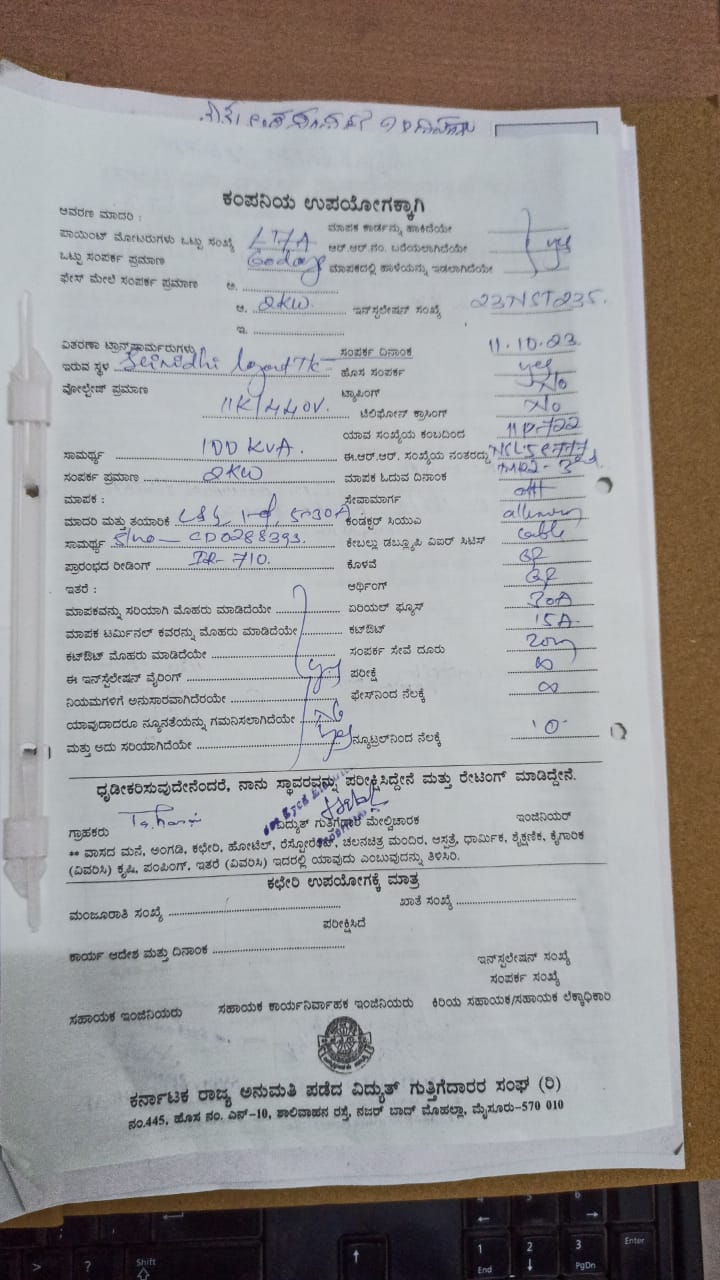 ಕಂಪನಿಯ ಉಪಯೋಗಕ್ಕಾಗಿ
ಆವರಣ ಮಾದರಿ : ಮಾಪಕ ಕಾರ್ಡನ್ನು ಹಾಕಿದೆಯೇ
ಪಾಯಿಂಟ್ ಮೋಟರುಗಳು ಒಟ್ಟು ಸಂಖ್ಯೆ ಆರ್.ಆರ್.ನಂ. ಬರೆಯಲಾಗಿದೆಯೇ yes
ಒಟ್ಟು ಸಂಪರ್ಕ ಪ್ರಮಾಣ ಮಾಪಕದಲ್ಲಿ ಹಾಳೆಯನ್ನು ಇಡಲಾಗಿದೆಯೇ
ಫೇಸ್ ಮೇಲೆ ಸಂಪರ್ಕ ಪ್ರಮಾಣ ಅ.
ಆ. 2KW ಇನ್‌ಸ್ಟಲೇಷನ್ ಸಂಖ್ಯೆ 23NST235.
ಇ.
ವಿತರಣಾ ಟ್ರಾನ್ಸ್‌ಫಾರ್ಮರುಗಳು ಸಂಪರ್ಕ ದಿನಾಂಕ 11.10.23
ಇರುವ ಸ್ಥಳ layout TK ಹೊಸ ಸಂಪರ್ಕ yes
ವೋಲ್ಟೇಜ್ ಪ್ರಮಾಣ ಟ್ಯಾಪಿಂಗ್ No
11K/440V. ಟೆಲಿಫೋನ್ ಕ್ರಾಸಿಂಗ್ No
ಯಾವ ಸಂಖ್ಯೆಯ ಕಂಬದಿಂದ
ಸಾಮರ್ಥ್ಯ 100 KVA. ಈ.ಆರ್.ಆರ್. ಸಂಖ್ಯೆಯ ನಂತರದ್ದು
ಸಂಪರ್ಕ ಪ್ರಮಾಣ 2KW ಮಾಪಕ ಓದುವ ದಿನಾಂಕ
ಮಾಪಕ : ಸೇವಾಮಾರ್ಗ
ಮಾದರಿ ಮತ್ತು ತಯಾರಿಕೆ ಕಂಡಕ್ಟರ್ ಸಿಯುಎ
ಸಾಮರ್ಥ್ಯ S/no - CD0288393. ಕೇಬಲ್ಲು ಡಬ್ಲ್ಯೂಪಿ ವಿಐರ್ ಸಿಟಿಸ್ cable
ಪ್ರಾರಂಭದ ರೀಡಿಂಗ್ IR-710. ಕೊಳವೆ GP
ಇತರೆ : ಆರ್ಥಿಂಗ್ GP
ಮಾಪಕವನ್ನು ಸರಿಯಾಗಿ ಮೊಹರು ಮಾಡಿದೆಯೇ ಏರಿಯಲ್ ಫ್ಯೂಸ್ 30A
ಮಾಪಕ ಟರ್ಮಿನಲ್ ಕವರನ್ನು ಮೊಹರು ಮಾಡಿದೆಯೇ ಕಟ್‌ಔಟ್ 15A
ಕಟ್‌ಔಟ್ ಮೊಹರು ಮಾಡಿದೆಯೇ ಸಂಪರ್ಕ ಸೇವೆ ದೂರು 20m
ಈ ಇನ್‌ಸ್ಟಲೇಷನ್ ವೈರಿಂಗ್ yes ಪರೀಕ್ಷೆ ∞
ನಿಯಮಗಳಿಗೆ ಅನುಸಾರವಾಗಿದೆರಯೇ ಫೇಸ್‌ನಿಂದ ನೆಲಕ್ಕೆ ∞
ಯಾವುದಾದರೂ ನ್ಯೂನತೆಯನ್ನು ಗಮನಿಸಲಾಗಿದೆಯೇ No
ಮತ್ತು ಅದು ಸರಿಯಾಗಿದೆಯೇ yes ನ್ಯೂಟ್ರಲ್‌ನಿಂದ ನೆಲಕ್ಕೆ '0'
ಧೃಡೀಕರಿಸುವುದೇನೆಂದರೆ, ನಾನು ಸ್ಥಾವರವನ್ನು ಪರೀಕ್ಷಿಸಿದ್ದೇನೆ ಮತ್ತು ರೇಟಿಂಗ್ ಮಾಡಿದ್ದೇನೆ.
ಗ್ರಾಹಕರು ವಿದ್ಯುತ್ ಗುತ್ತಿಗೆದಾರ ಮೇಲ್ವಿಚಾರಕ ಇಂಜಿನಿಯರ್
** ವಾಸದ ಮನೆ, ಅಂಗಡಿ, ಕಛೇರಿ, ಹೋಟೆಲ್, ರೆಸ್ಟೋರೆಂಟ್, ಚಲನಚಿತ್ರ ಮಂದಿರ, ಆಸ್ಪತ್ರೆ, ಧಾರ್ಮಿಕ, ಶೈಕ್ಷಣಿಕ, ಕೈಗಾರಿಕ
(ವಿವರಿಸಿ) ಕೃಷಿ, ಪಂಪಿಂಗ್, ಇತರೆ (ವಿವರಿಸಿ) ಇದರಲ್ಲಿ ಯಾವುದು ಎಂಬುವುದನ್ನು ತಿಳಿಸಿರಿ.
ಕಛೇರಿ ಉಪಯೋಗಕ್ಕೆ ಮಾತ್ರ
ಮಂಜೂರಾತಿ ಸಂಖ್ಯೆ ಖಾತೆ ಸಂಖ್ಯೆ
ಪರೀಕ್ಷಿಸಿದೆ
ಕಾರ್ಯ ಆದೇಶ ಮತ್ತು ದಿನಾಂಕ
ಇನ್‌ಸ್ಟಲೇಷನ್ ಸಂಖ್ಯೆ
ಸಂಪರ್ಕ ಸಂಖ್ಯೆ
ಸಹಾಯಕ ಇಂಜಿನಿಯರು ಸಹಾಯಕ ಕಾರ್ಯನಿರ್ವಾಹಕ ಇಂಜಿನಿಯರು ಕಿರಿಯ ಸಹಾಯಕ/ಸಹಾಯಕ ಲೆಕ್ಕಾಧಿಕಾರಿ
ಕರ್ನಾಟಕ ರಾಜ್ಯ ಅನುಮತಿ ಪಡೆದ ವಿದ್ಯುತ್ ಗುತ್ತಿಗೆದಾರರ ಸಂಘ (ರಿ)
ನಂ.445, ಹೊಸ ನಂ. ಎನ್-10, ಶಾಲಿವಾಹನ ರಸ್ತೆ, ನಜರ್ ಬಾದ್ ಮೊಹಲ್ಲಾ, ಮೈಸೂರು-570 010
Shift
1 2 3 Enter
End PgDn